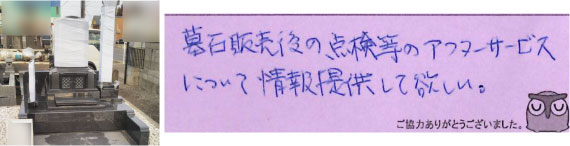 墓石販売後の、点検等のアフターサービス
について情報提供して欲しい。
ご協力ありがとうございました。